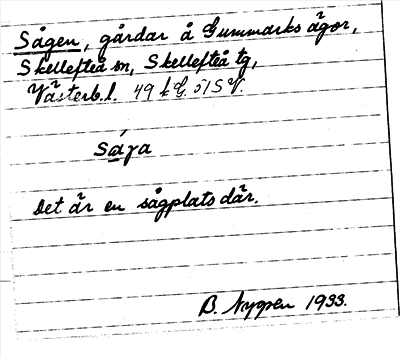 Sågen, gårdar å Gummarks ägor,
Skellefteå sn, Skellefteå tg,
Västerb.l. 49 k G ö/SV.
Såga
Det är en sågplats där.
B. Nygren 1933.